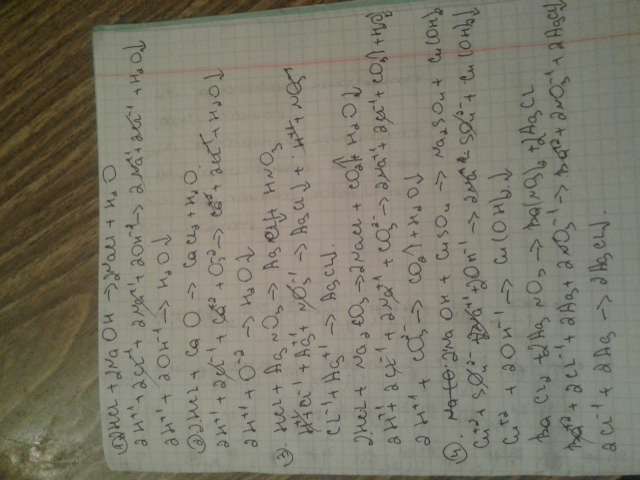 1) 2HCl + 2NaOH → 2NaCl + H2O
2H+1 + 2Cl-1 + 2Na+1 + 2OH-1 → 2Na+1 + 2Cl-1 + H2O↓
2H+1 + 2OH-1 → H2O↓
2) 2HCl + CaO → CaCl2 + H2O
2H+1 + 2Cl-1 + Ca+2 + O-2 → Ca+2 + 2Cl-1 + H2O↓
2H+1 + O-2 → H2O↓
3. HCl + AgNO3 → AgCl↓ + HNO3
H+1 + Cl-1 + Ag+1 + NO3-1 → AgCl↓ + H+1 + NO3-1
Cl-1 + Ag+1 → AgCl↓.
2HCl + Na2CO3 → 2NaCl + CO2↑ + H2O↓
2H+1 + 2Cl-1 + 2Na+1 + CO3 2- → 2Na+1 + 2Cl-1 + CO2↑ + H2O↓
2H+1 + CO3 2- → CO2↑ + H2O↓
4. 2NaOH + CuSO4 → Na2SO4 + Cu(OH)2
Cu+2 + SO4 2- + 2Na+1 + 2OH-1 → 2Na+1 + SO4 2- + Cu(OH)2↓
Cu+2 + 2OH-1 → Cu(OH)2↓.
BaCl2 + 2AgNO3 → Ba(NO3)2 + 2AgCl
Ba+2 + 2Cl-1 + 2Ag + 2NO3-1 → Ba+2 + 2NO3-1 + 2AgCl↓
2Cl-1 + 2Ag → 2AgCl↓.